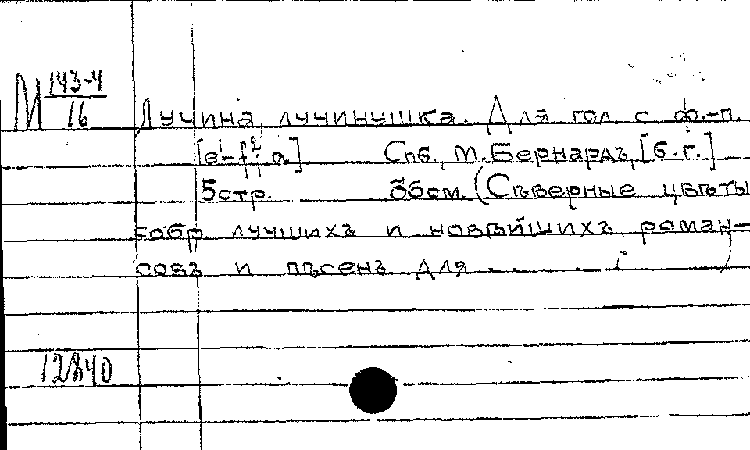 М 143-4
16
Лучина лучинушка. Для гол с ф.-п.
[e¹-f²; a] Спб, М. Бернардъ, [б.г.]
5стр. (Съверные цвъты
собр лучшихъ и новъйшихъ роман-
совъ и пъсенъ для ...... )
12840